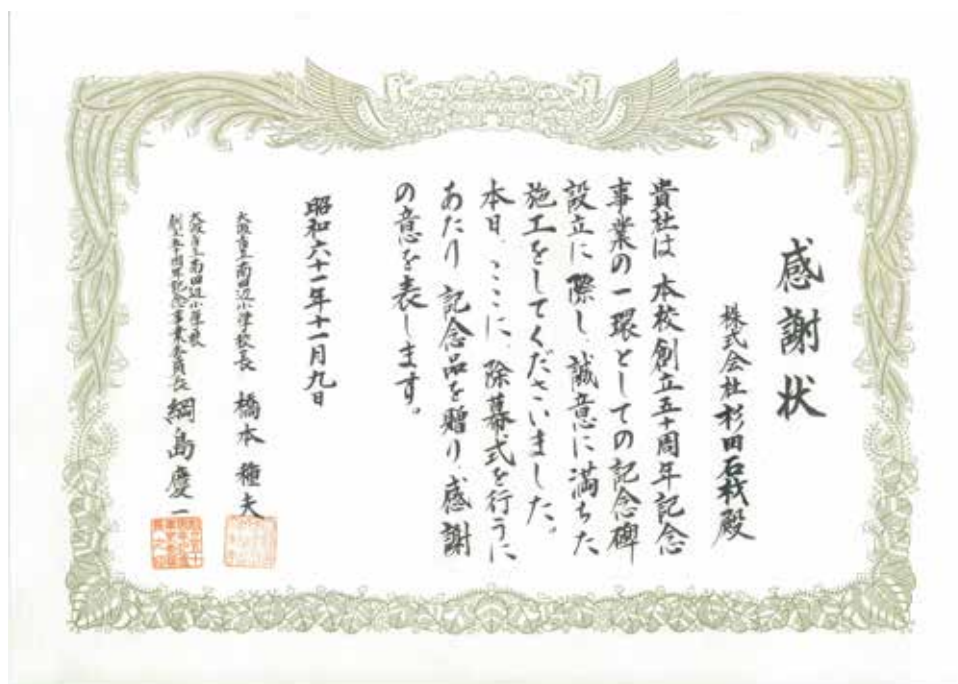 感謝状
株式会社杉田石材殿
貴社は 本校創立五十周年記念
事業の一環としての記念碑
設立に際し 誠意に満ちた
施工をしてくださいました。
本日、ここに、除幕式を行うに
あたり 記念品を贈り 感謝
の意を表します。
昭和六十一年十一月九日
大阪市立南田辺小学校長 橋本種夫
大阪市立南田辺小学校
創立五十周年記念事業委員長 綱島慶一